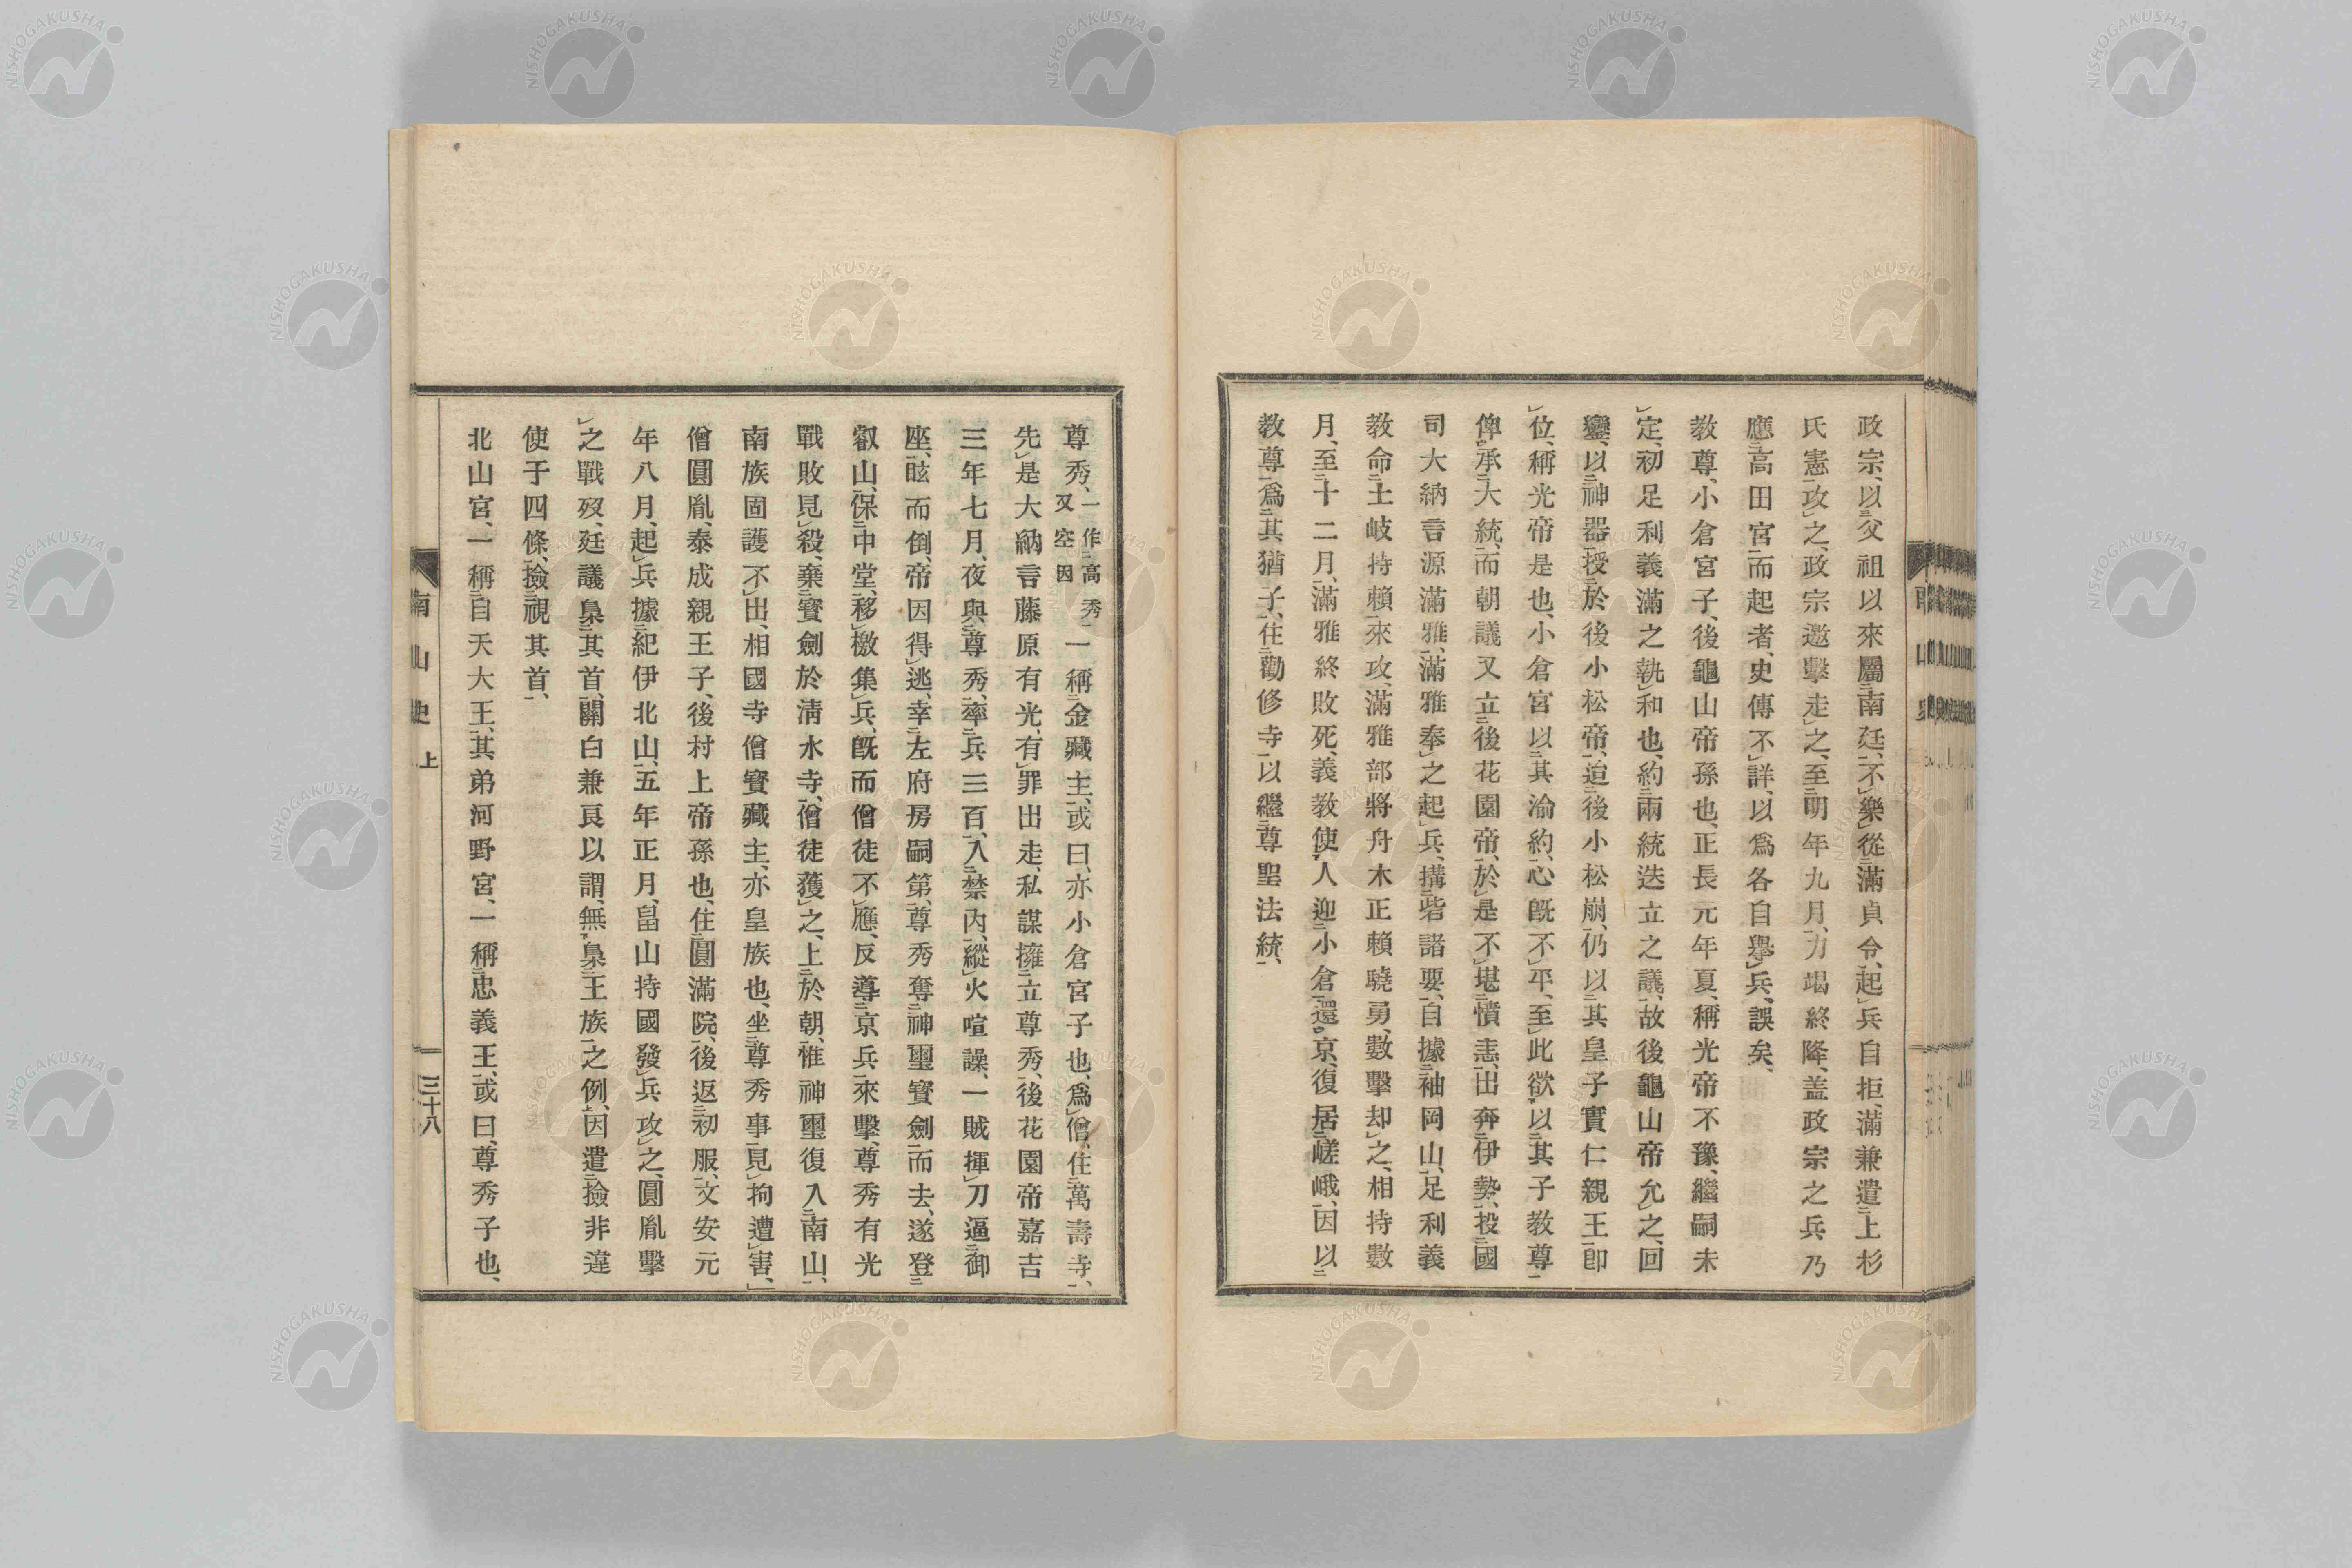 政宗、以父祖以來屬南廷、不樂從滿貞令、起兵自拒、滿兼遣上杉
氏憲攻之、政宗邀擊走之、至明年九月、力竭終降、盖政宗之兵乃
應高田宮而起者、史傳不詳、以爲各自擧兵、誤矣、
教尊、小倉宮子、後龜山帝孫也、正長元年夏、稱光帝不豫、繼嗣未
定、初足利義滿之執和也、約兩統迭立之議、故後龜山帝允之、回
鑾、以神器授於後小松帝、迨後小松崩、仍以其皇子實仁親王卽
位、稱光帝是也、小倉宮以其渝約、心旣不平、至此欲以其子教尊
俾承大統、而朝議又立後花園帝、於是不堪憤恚、出奔伊勢、投國
司大納言源滿雅、滿雅奉之起兵、搆砦諸要、自據袖岡山、足利義
教命土岐持賴來攻、滿雅部將舟木正賴驍勇、數擊却之、相持數
月、至十二月、滿雅終敗死、義教使人迎小倉還京、復居嵯峨、因以
教尊爲其猶子、住勸修寺以繼尊聖法統、
尊秀、一作高秀又空因一稱金藏主、或曰、亦小倉宮子也、爲僧、住萬壽寺、
先是大納言藤原有光、有罪出走、私謀擁立尊秀、後花園帝嘉吉
三年七月、夜與尊秀、率兵三百、入禁內、縱火喧譟、一賊揮刀逼御
座、眩而倒、帝因得逃、幸左府房嗣第、尊秀奪神璽寶劍而去、遂登
叡山、保中堂、移檄集兵、旣而僧徒不應、反導京兵來擊、尊秀有光
戰敗見殺、棄寶劍於淸水寺、僧徒獲之、上於朝、惟神璽復入南山、
南族固護不出、相國寺僧寶藏主、亦皇族也、坐尊秀事見拘遭害、
僧圓胤、泰成親王子、後村上帝孫也、住圓滿院、後返初服、文安元
年八月、起兵據紀伊北山、五年正月、畠山持國發兵攻之、圓胤擊
之戰歿、廷議梟其首、關白兼良以謂、無梟王族之例、因遣撿非違
使于四條、撿視其首、
北山宮、一稱自天大王、其弟河野宮、一稱忠義王、或曰、尊秀子也、
南山史 上
三十八
NISHOGAKUSHA